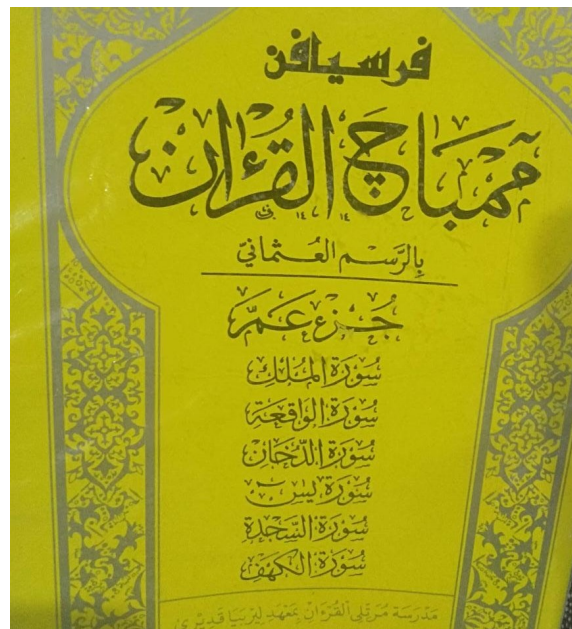 فرسيافن
ممباچ القرءان
بِالرَّسم العُثمانيّ
جُزء عَمَّ
سُورَة المُلك
سُورَة الوَاقعَة
سُورَة الدُّخان
سُورَة يٰسٓ
سُورَة السَّجدَة
سُورَة الكَهف
مدرسة مرتلى القرءان بمعهد لربيا قديرى